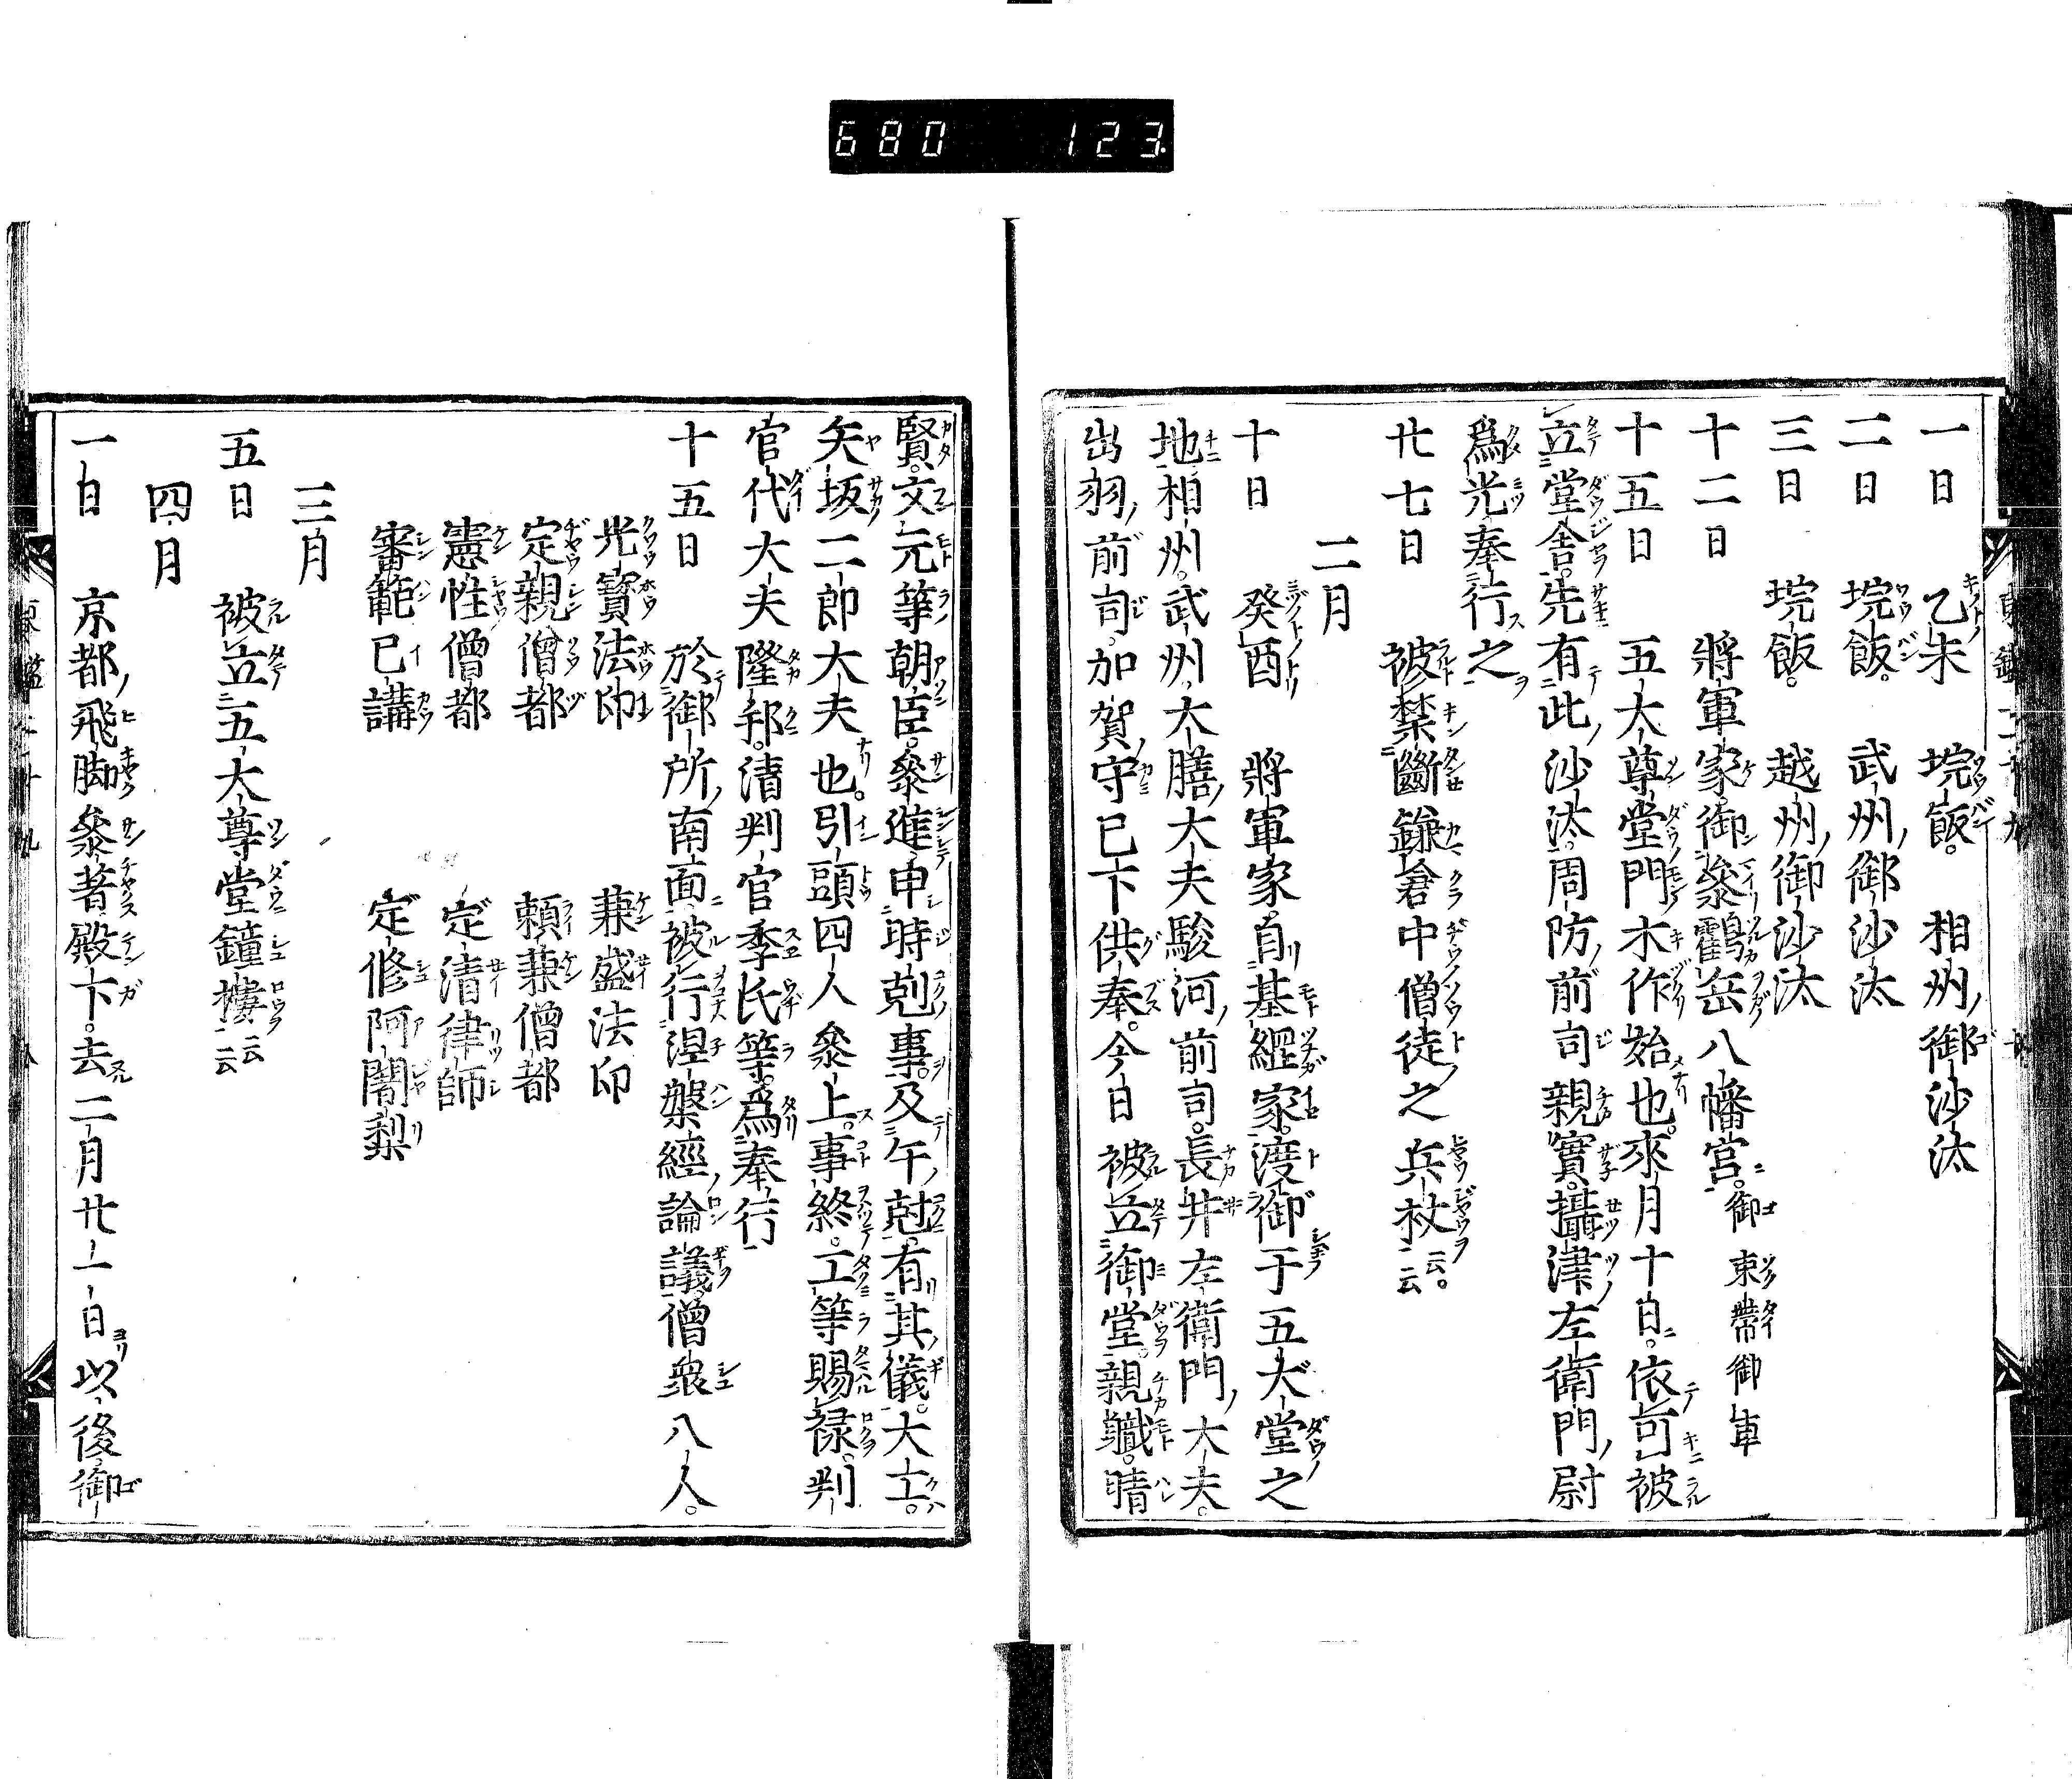 680 123
一日 乙未 垸飯。相州ノ御沙汰
二日 垸飯。武州ノ御沙汰
三日 垸飯。越州ノ御沙汰
十二日 將軍家御參鶴岳八幡宮ニ。御束帶御車
十五日 五大尊堂門木作始也。來月十日。依可被
立堂舎。先有此沙汰。周防前司親實。攝津左衛門ノ尉
爲光奉行之
廿七日 被禁斷鎌倉中僧徒之兵杖云云。
二月
十日 癸酉 將軍家。自基綱家。渡御于五大堂之
地。相州。武州。大膳大夫駿河前司。長井左衛門ノ大夫。
出羽前司。加賀守已下供奉。今日被立御堂。親職。晴
賢。文元等朝臣。參進申時剋事。及午剋。有其儀。大工。
矢坂二郎大夫也。引頭四人參上。事終。工等賜禄。判
官代大夫隆邦。清判官季氏等。爲奉行
十五日 於御所ノ南面被行涅槃經ノ論議僧衆八人。
光寳法印 兼盛法印
定親僧都 頼兼僧都
憲性僧都 定清律師
審範已講 定修阿闍梨
三月
五日 被立五大尊堂鐘樓云云
四月
一日 京都ノ飛脚參著殿下。去二月廿一日以後御